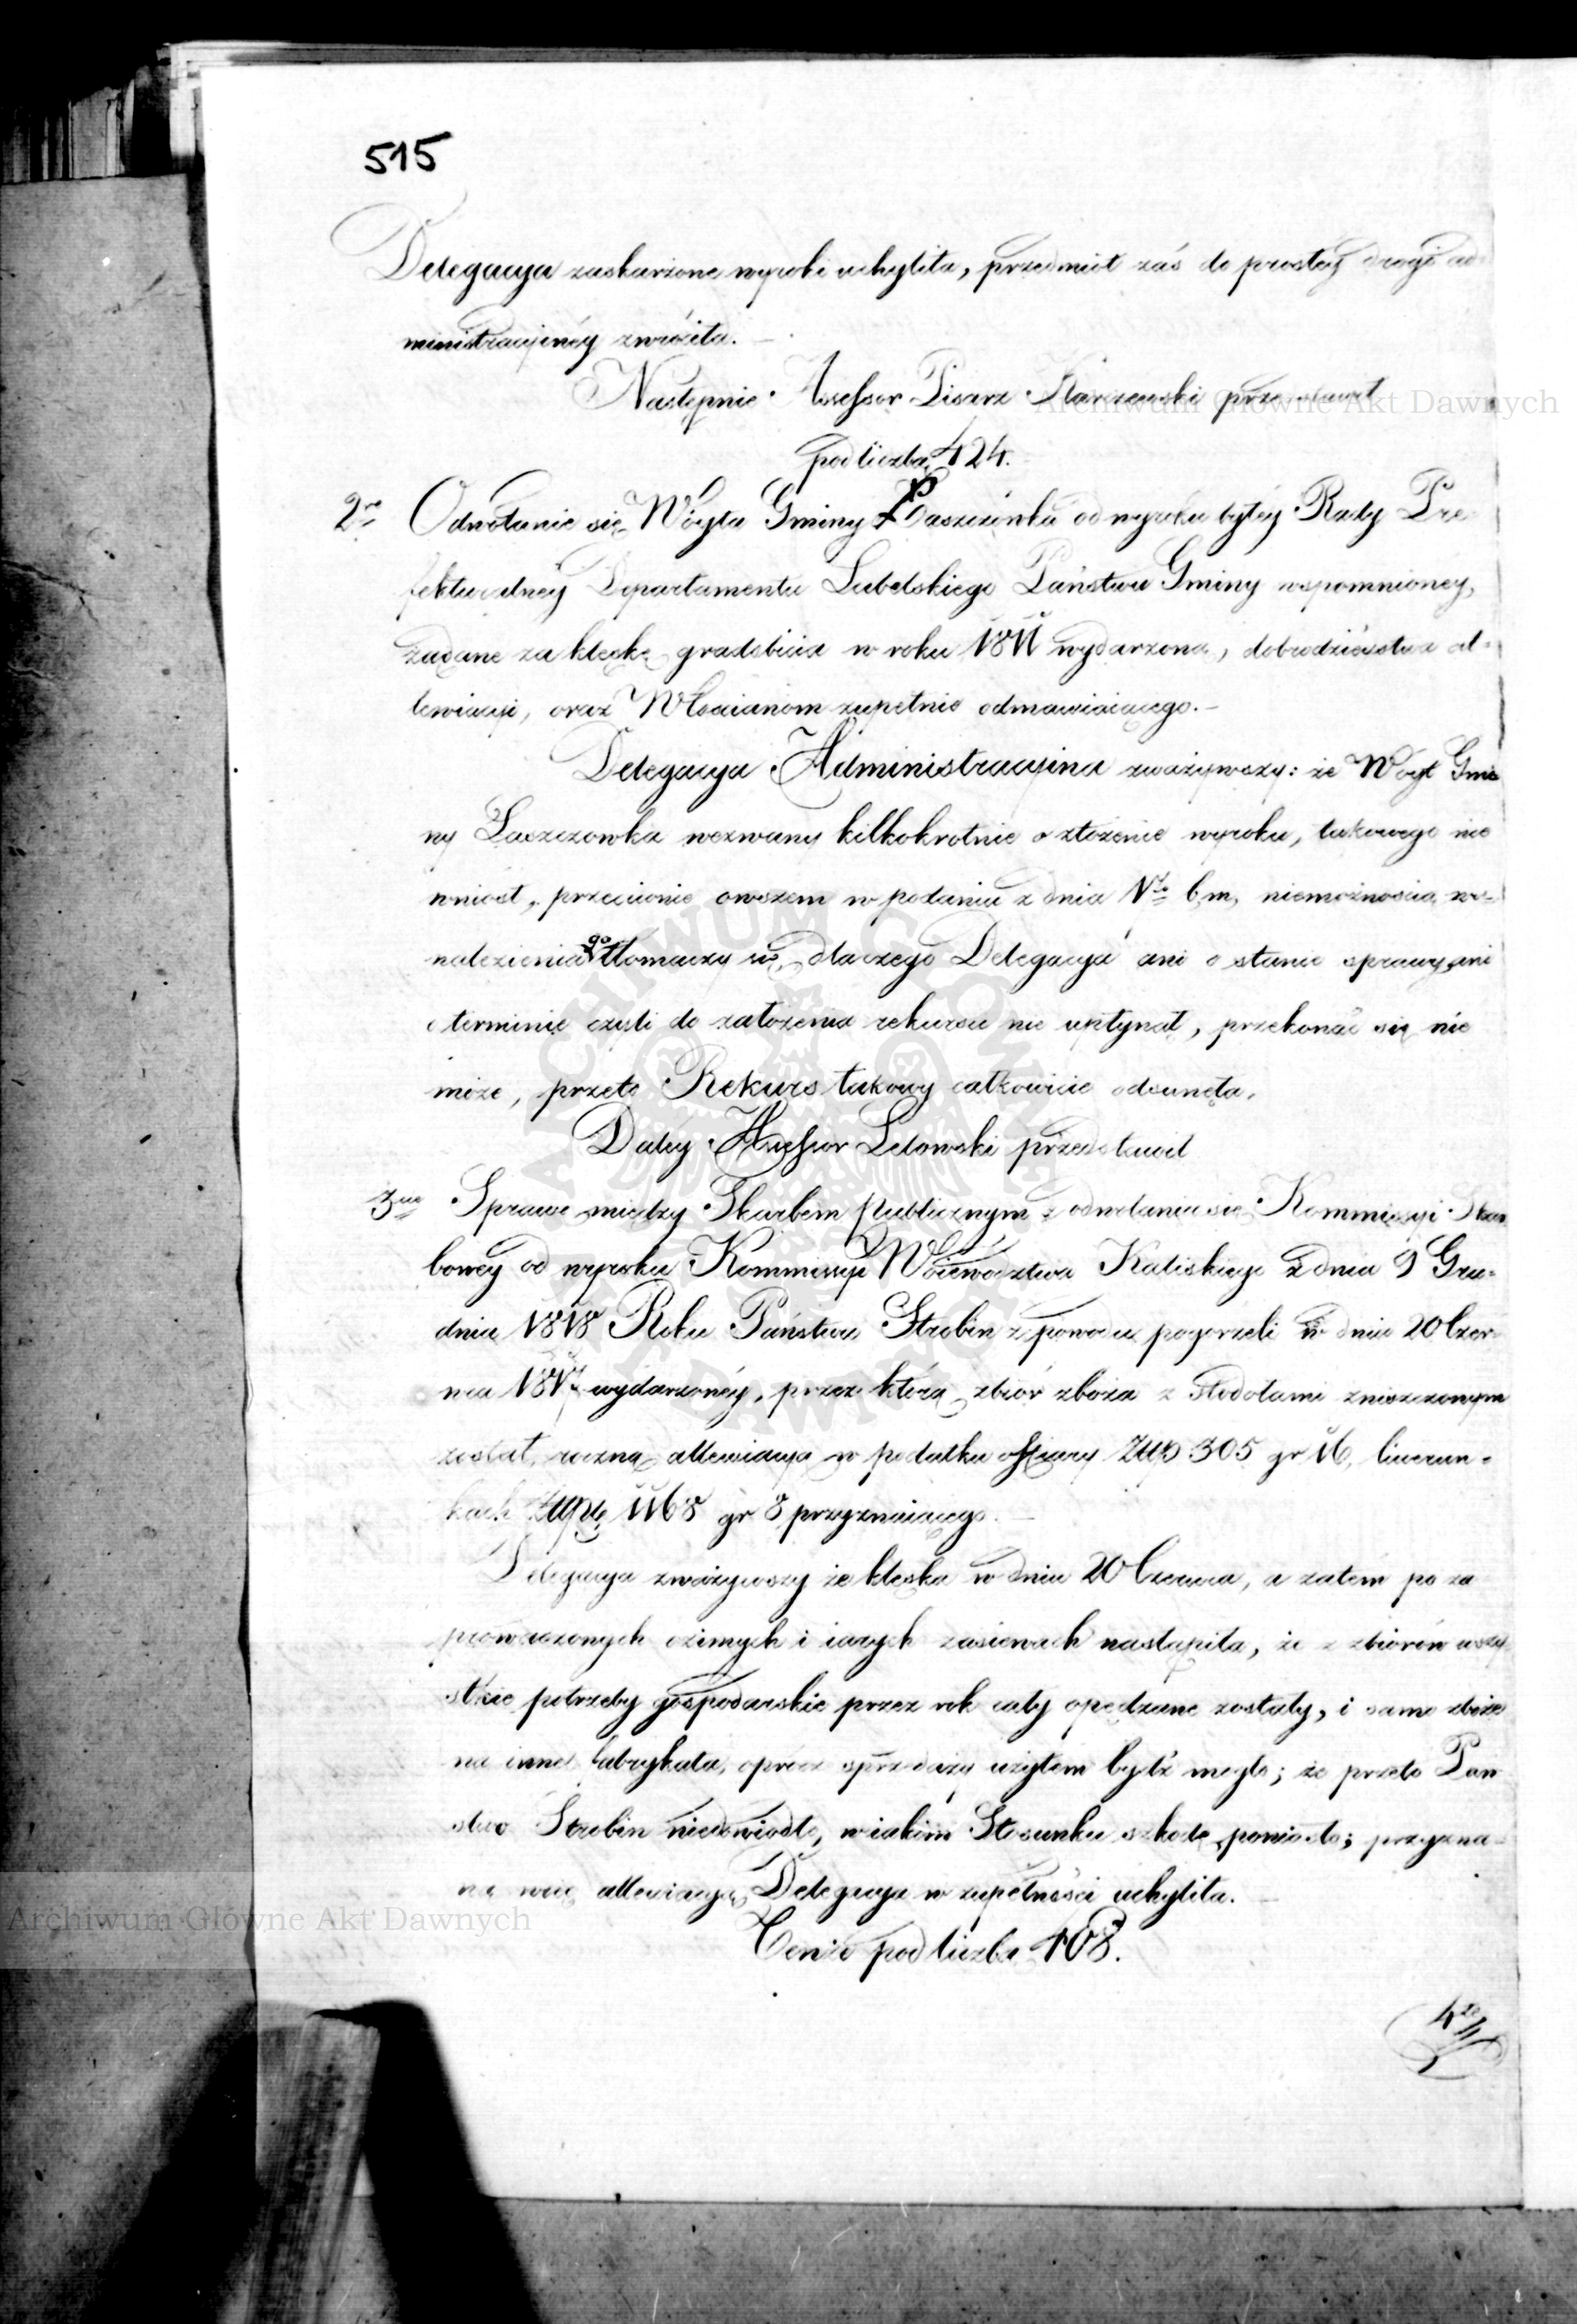 515
Delegacya zaskarżone wyroki uchyliła, przedmiot zaś do prostéy drogi ad-
ministracyinéy zwróciła. —
Następnie Assessor Pisarz Karczewski przedstawił
pod liczbą 424.
2re Odwołanie się Wóyta Gminy Łaszczówka od wyroku byłéy Rady Pre-
fekturalnéy Departamentu Lubelskiego Państwu Gminy wspomnioney,
żądane za klęskę gradobicia w roku 1811 wydarzoną, dobrodzieystwa al-
lewiacyi, oraz Włościanom zupełnie odmawiaiącego. —
Delegacya Administracyina zważywszy: że Woyt Gmi-
ny Łaszczowka wezwany kilkokrotnie o złożenie wyroku, takowego nie
wniosł, przeciwnie owszem w podaniu z dnia 1go b. m. niemożnością wy-
nalezienia go tłomaczy się, dlaczego Delegacya ani o stanie sprawy, ani
o terminie czyli do założenia rekursu nie upłynął, przekonać się nie
może, przeto Rekurs takowy całkowicie odsunęła.
Daléy Assessor Letowski przedstawił
3cie Sprawę między Skarbem Publicznym z odwołania się Kommissyi Skar-
bowéy od wyroku Kommissyi Woiewództwa Kaliskiego z dnia 9 Gru-
dnia 1818 Roku Państwu Strobin z powodu pogorzeli w dniu 20 Czer-
wca 1817 wydarzonéy, przez którą zbiór zboża z stodołami zniszczonym
został, roczną allewiacyą w podatku offiary Złp 305 gr 16, liwerun-
kach Złp 1168 gr 8 przyznaiącego. —
Delegacya zważywszy że klęska w dniu 20 Czerwca, a zatem po za
prowadzonych ozimych i iarych zasiewach nastąpiła, że z zbiorów wszy-
stkie potrzeby gospodarskie przez rok cały opędzane zostały, i samo zboże
na inne fabrykata, oprócz sprzedaży użytém bydź mogło; że przeto Pań-
stwo Strobin niedowiodło, w iakim Stosunku szkodę poniosło; przyzna-
ną więc allewiacyą Delegacya w zupełności uchyliła. —
Tenże pod liczbą 408.
4te
Archiwum Główne Akt Dawnych
Archiwum Główne Akt Dawnych